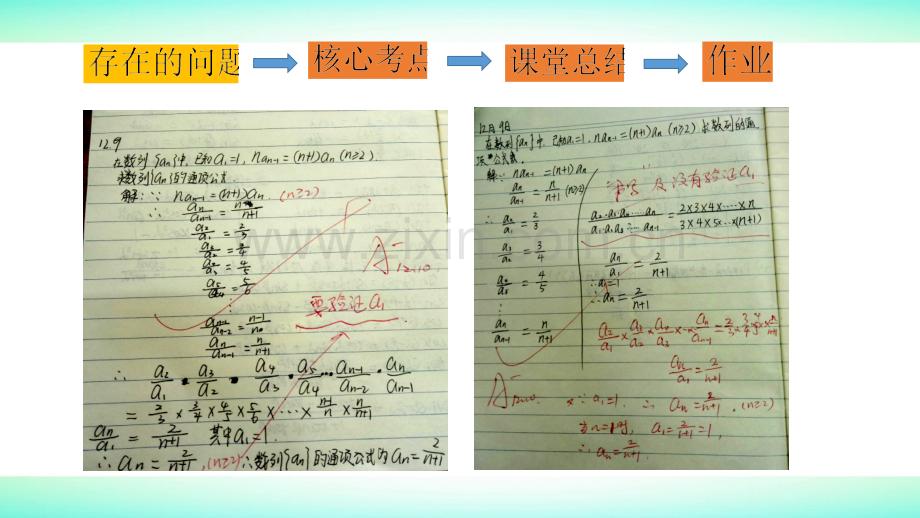 存在的问题
核心考点
课堂总结
作业
12.9
在数列{an}中,已知a₁=1, naₙ₋₁=(n+1)aₙ (n≥2).
求数列{an}的通项公式
解:∵ naₙ₋₁=(n+1)aₙ. (n≥2)
∴ aₙ/aₙ₋₁ = n/n+1
a₂/a₁ = 2/3
a₃/a₂ = 3/4
a₄/a₃ = 4/5
a₅/a₄ = 5/6
⋮
要验证a₁
aₙ₋₁/aₙ₋₂ = n-1/n
aₙ/aₙ₋₁ = n/n+1
∴ a₂/a₁ · a₃/a₂ · a₄/a₃ · a₅/a₄ … aₙ₋₁/aₙ₋₂ · aₙ/aₙ₋₁
= 2/3 × 3/4 × 4/5 × 5/6 × … × n-1/n × n/n+1
aₙ/a₁ = 2/n+1 其中a₁=1.
∴ aₙ = 2/n+1, (n≥2) ∴数列{an}的通项公式为aₙ = 2/n+1
12月9日
在数列{an}中,已知a₁=1, naₙ₋₁=(n+1)aₙ (n≥2) 求数列的通
项公式.
解: naₙ₋₁=(n+1)aₙ
aₙ/aₙ₋₁ = n/n+1 (n≥2)
∴ a₂/a₁ = 2/3
a₃/a₂ = 3/4
a₄/a₃ = 4/5
⋮
aₙ/aₙ₋₁ = n/n+1
书写及没有验证a₁
a₂·a₃·a₄……aₙ/a₁·a₂·a₃……aₙ₋₁ = 2×3×4×……×n/3×4×5×…×(n+1)
aₙ/a₁ = 2/n+1
∵a₁=1
∴aₙ = 2/n+1
a₂/a₁ × a₃/a₂ × a₄/a₃ × … × aₙ/aₙ₋₁ = 2/3 × 3/4 × 4/5 × … × n/n+1
aₙ/a₁ = 2/n+1
∵ a₁=1. ∴ aₙ = 2/n+1. (n≥2)
当n=1时, a₁ = 2/1+1 = 1,
∴ aₙ = 2/n+1.